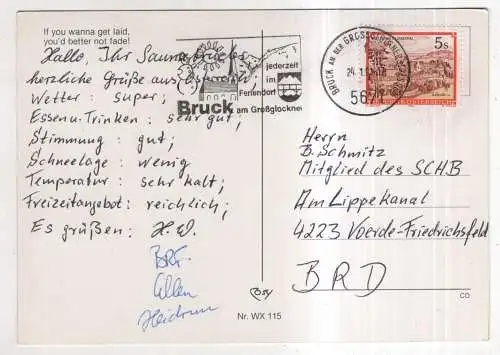 If you wanna get laid,
you'd better not fade!
Hallo, Ihr Saunabrüder
herzliche Grüße aus
Wetter: super;
Essen u. Trinken: sehr gut;
Stimmung: gut;
Schneelage: wenig
Temperatur: sehr kalt;
Freizeitangebot: reichlich;
Es grüßen: H.W.
Heidrun
jederzeit
im
Feriendorf
Bruck am Großglockner
BRUCK AN DER GROSSGLOCKNER
24.1.
5s
REPUBLIK ÖSTERREICH
Herrn
B. Schmitz
Mitglied des SCHB
Am Lippekanal
4223 Voerde-Friedrichsfeld
BRD
CD
Nr. WX 115